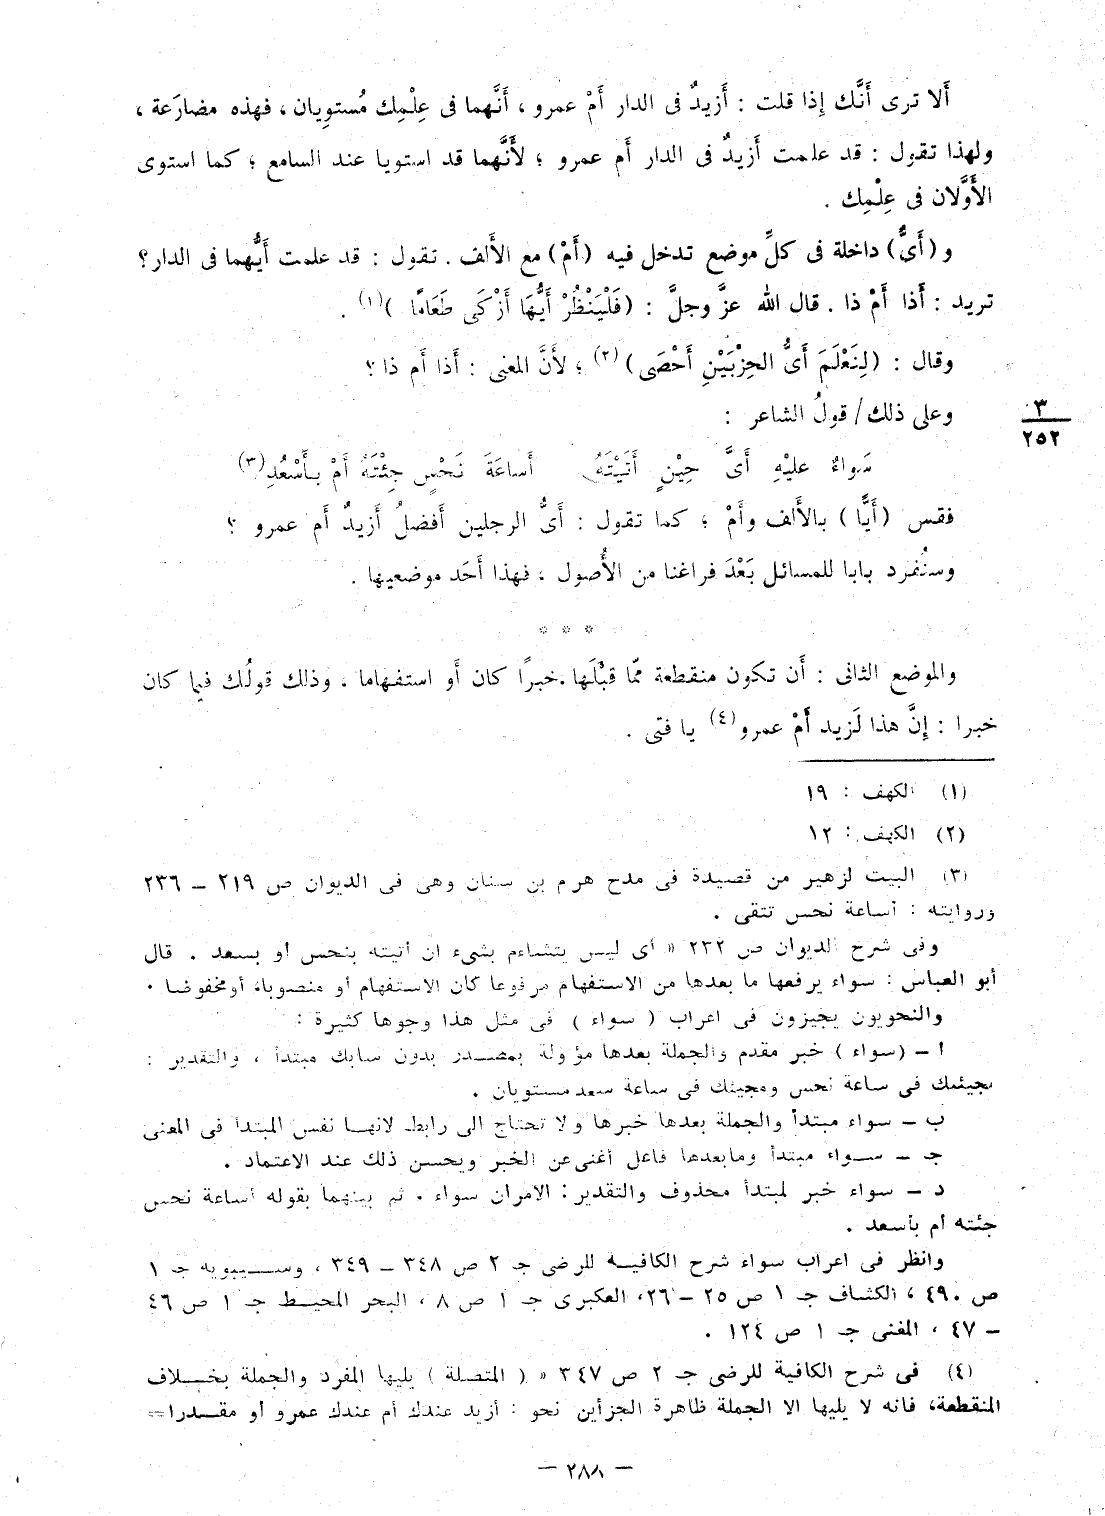 أَلا ترى أَنَّك إِذا قلت : أَزيدٌ فى الدار أَمْ عمرو ، أَنَّهما فى عِلْمِك مُستوِيان ، فهذه مضارَعة ،
ولهذا تقول : قد علمت أَزيدٌ فى الدار أَم عمرو ؛ لأَنَّهما قد استويا عند السامع ؛ كما استوى
الأَوَّلان فى عِلْمِك .
و (أَىُّ) داخلة فى كلِّ موضع تدخل فيه (أَمْ) مع الأَلف . تقول : قد علمت أَيُّهما فى الدار؟
تريد : أَذا أَمْ ذا . قال الله عزَّ وجلَّ : (فَلْيَنْظُرْ أَيُّهَا أَزْكَى طَعَامًا )(١) .
وقال : (لِنَعْلَمَ أَىُّ الحِزْبَيْنِ أَحْصَى)(٢) ؛ لأَنَّ المعنى : أَذا أَم ذا ؟
وعلى ذلك/ قولُ الشاعر :
٣
٢٥٢
سَواءٌ عليْهِ أَىَّ حِيْنٍ أَتَيْتَهُ أَساعَةَ نَحْسٍ جِئْتَهُ أَمْ بأَسْعُدِ(٣)
فقس (أَيًّا) بالأَلف وأَمْ ؛ كما تقول : أَىُّ الرجلين أَفضلُ أَزيدٌ أَم عمرو ؟
وسنُفرد بابا للمسائل بَعْدَ فراغنا من الأُصول ، فهذا أَحَد موضعيها .
* * *
والموضع الثانى : أَن تكون منقطعة ممّا قبْلَها . خبرًا كان أَو استفهاما ، وذلك قولُك فيما كان
خبرا : إِنَّ هذا لَزيد أَمْ عمرو(٤) يا فتى .
(١) الكهف : ١٩
(٢) الكهف : ١٢
(٣) البيت لزهير من قصيدة فى مدح هرم بن سنان وهى فى الديوان ص ٢١٩ – ٢٣٦
وروايته : أساعة نحس تتقى .
وفى شرح الديوان ص ٢٣٢ « أى ليس يتشاءم بشىء ان أتيته بنحس أو بسعد . قال
أبو العباس : سواء يرفعها ما بعدها من الاستفهام مرفوعا كان الاستفهام أو منصوبا، أو مخفوضا .
والنحويون يجيزون فى اعراب ( سواء ) فى مثل هذا وجوها كثيرة :
ا – (سواء ) خبر مقدم والجملة بعدها مؤولة بمصدر بدون سابك مبتدأ ، والتقدير :
مجيئك فى ساعة نحس ومجيئك فى ساعة سعد مستويان .
ب – سواء مبتدأ والجملة بعدها خبرها ولا تحتاج الى رابط لانها نفس المبتدأ فى المعنى
جـ – سواء مبتدأ وما بعدها فاعل أغنى عن الخبر ويحسن ذلك عند الاعتماد .
د – سواء خبر لمبتدأ محذوف والتقدير : الامران سواء . ثم بينهما بقوله أساعة نحس
جئته أم بأسعد .
وانظر فى اعراب سواء شرح الكافية للرضى جـ ٢ ص ٣٤٨ – ٣٤٩ ، وسيبويه جـ ١
ص ٤٩٠ ، الكشاف جـ ١ ص ٢٥ – ٢٦ ، العكبرى جـ ١ ص ٨ ، البحر المحيط جـ ١ ص ٤٦
– ٤٧ ، المغنى جـ ١ ص ١٢٤ .
(٤) فى شرح الكافية للرضى جـ ٢ ص ٣٤٧ « ( المتصلة ) يليها المفرد والجملة بخلاف
المنقطعة، فانه لا يليها الا الجملة ظاهرة الجزأين نحو : أزيد عندك أم عندك عمرو أو مقدرا=
– ٢٨٨ –